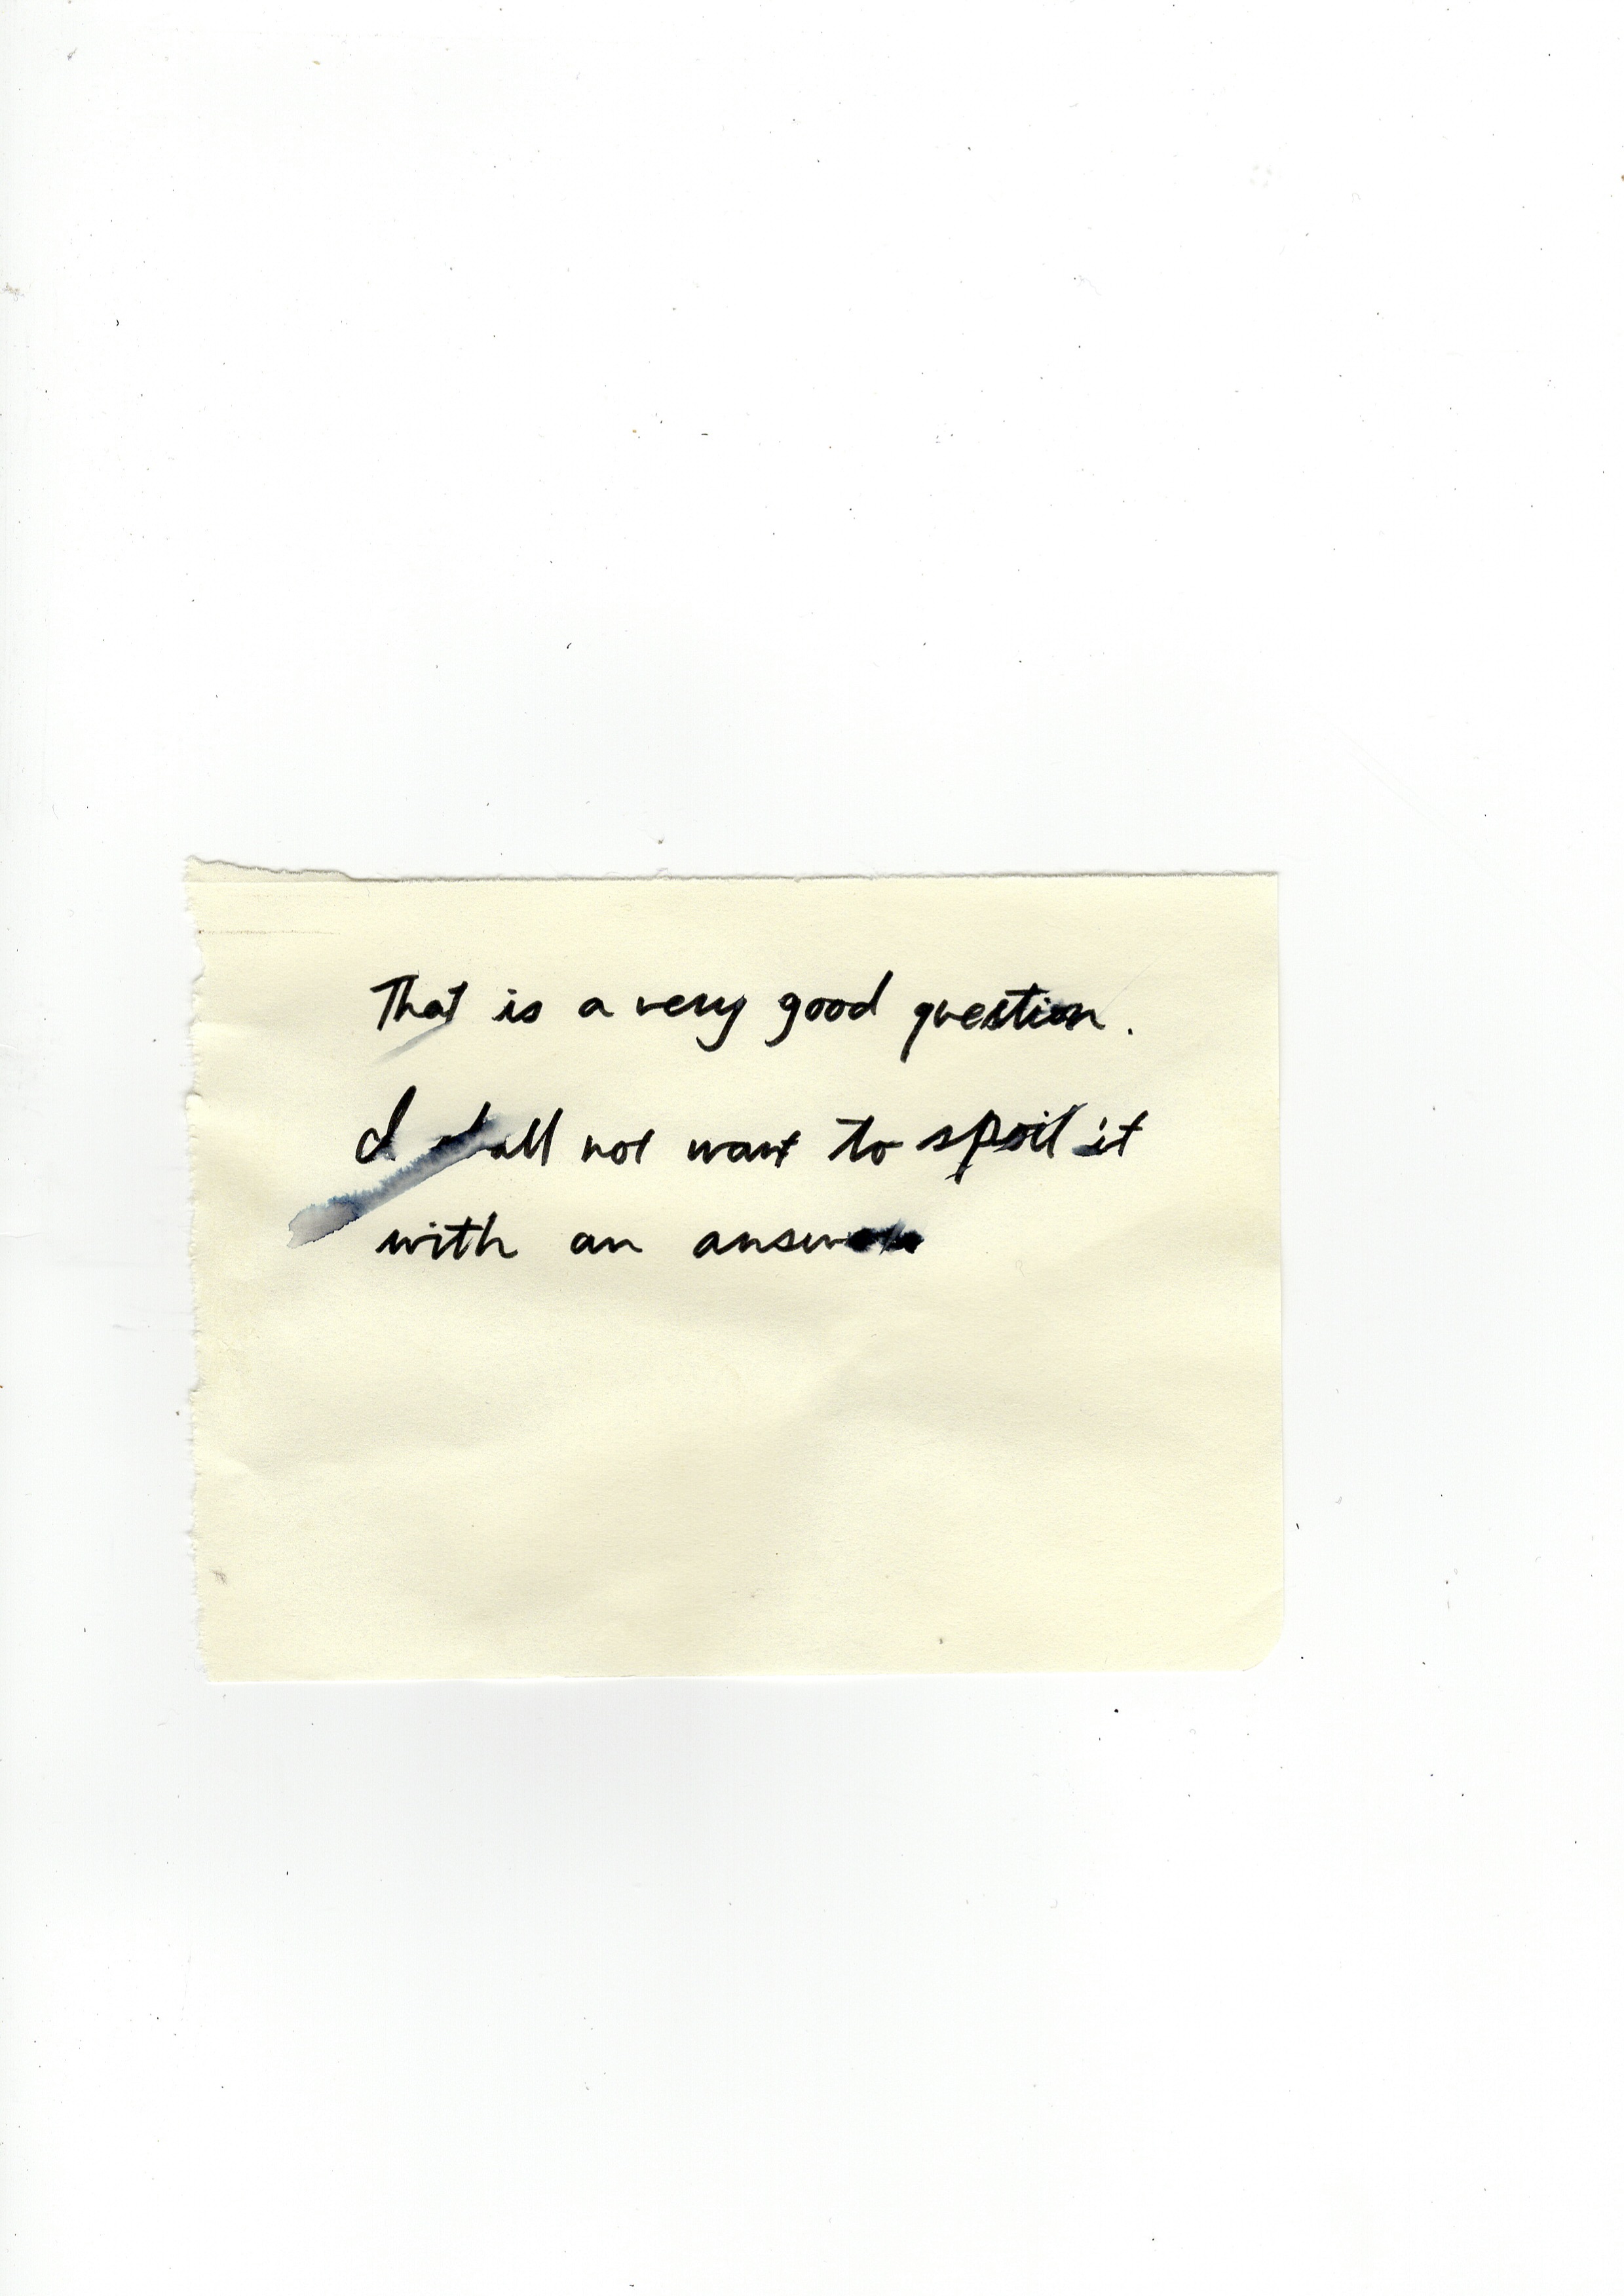 That is a very good question.
I shall not want to spoil it
with an answer